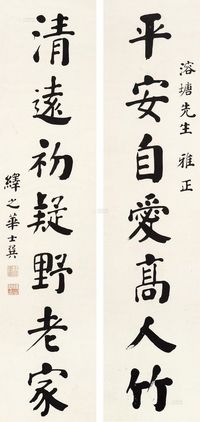 溶塘先生 雅正
平安自愛高人竹
清遠初疑野老家
繹之華士奚